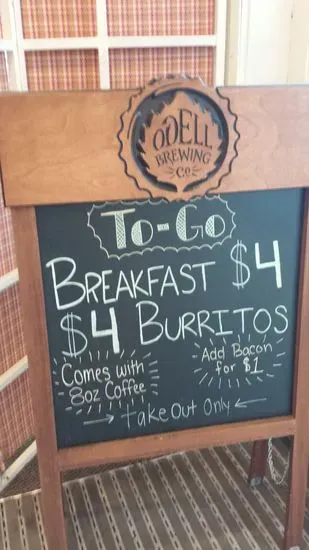 ODELL
BREWING
Co
To-Go
BREAKFAST $4
$4 BURRITOS
Comes with
8oz Coffee
Add Bacon
for $1
→ Take Out Only ←